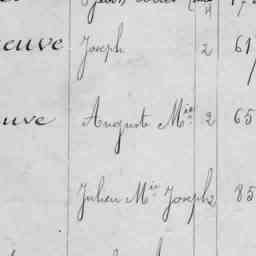 euve Joseph 2 61
uve Auguste Mie 2 65
Julien Mie Joseph 2 85